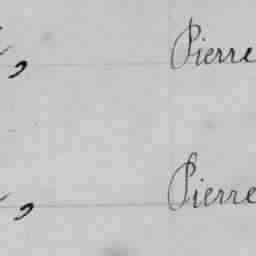 , Pierre
, Pierre